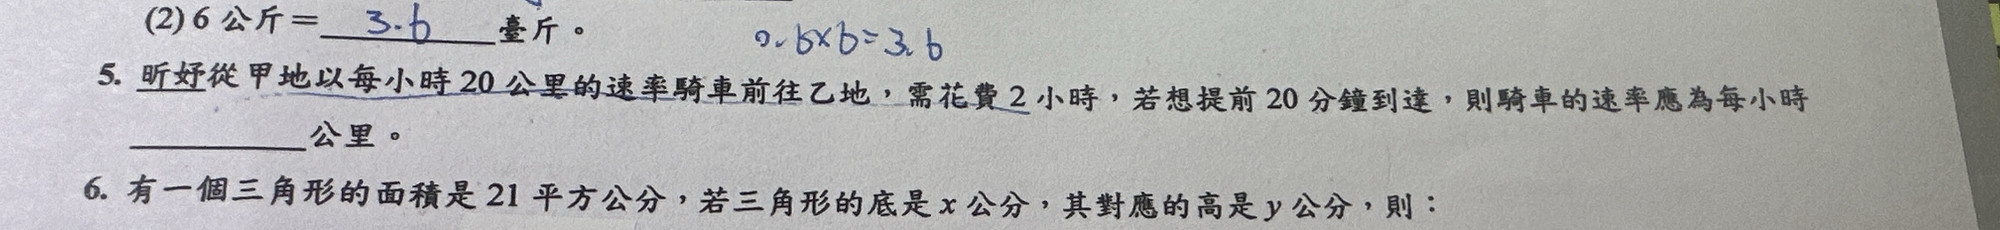 (2) 6 公斤＝3.6臺斤。
0.6×6=3.6
5. 昕妤從甲地以每小時 20 公里的速率騎車前往乙地，需花費 2 小時，若想提前 20 分鐘到達，則騎車的速率應為每小時
公里。
6. 有一個三角形的面積是 21 平方公分，若三角形的底是 x 公分，其對應的高是 y 公分，則：